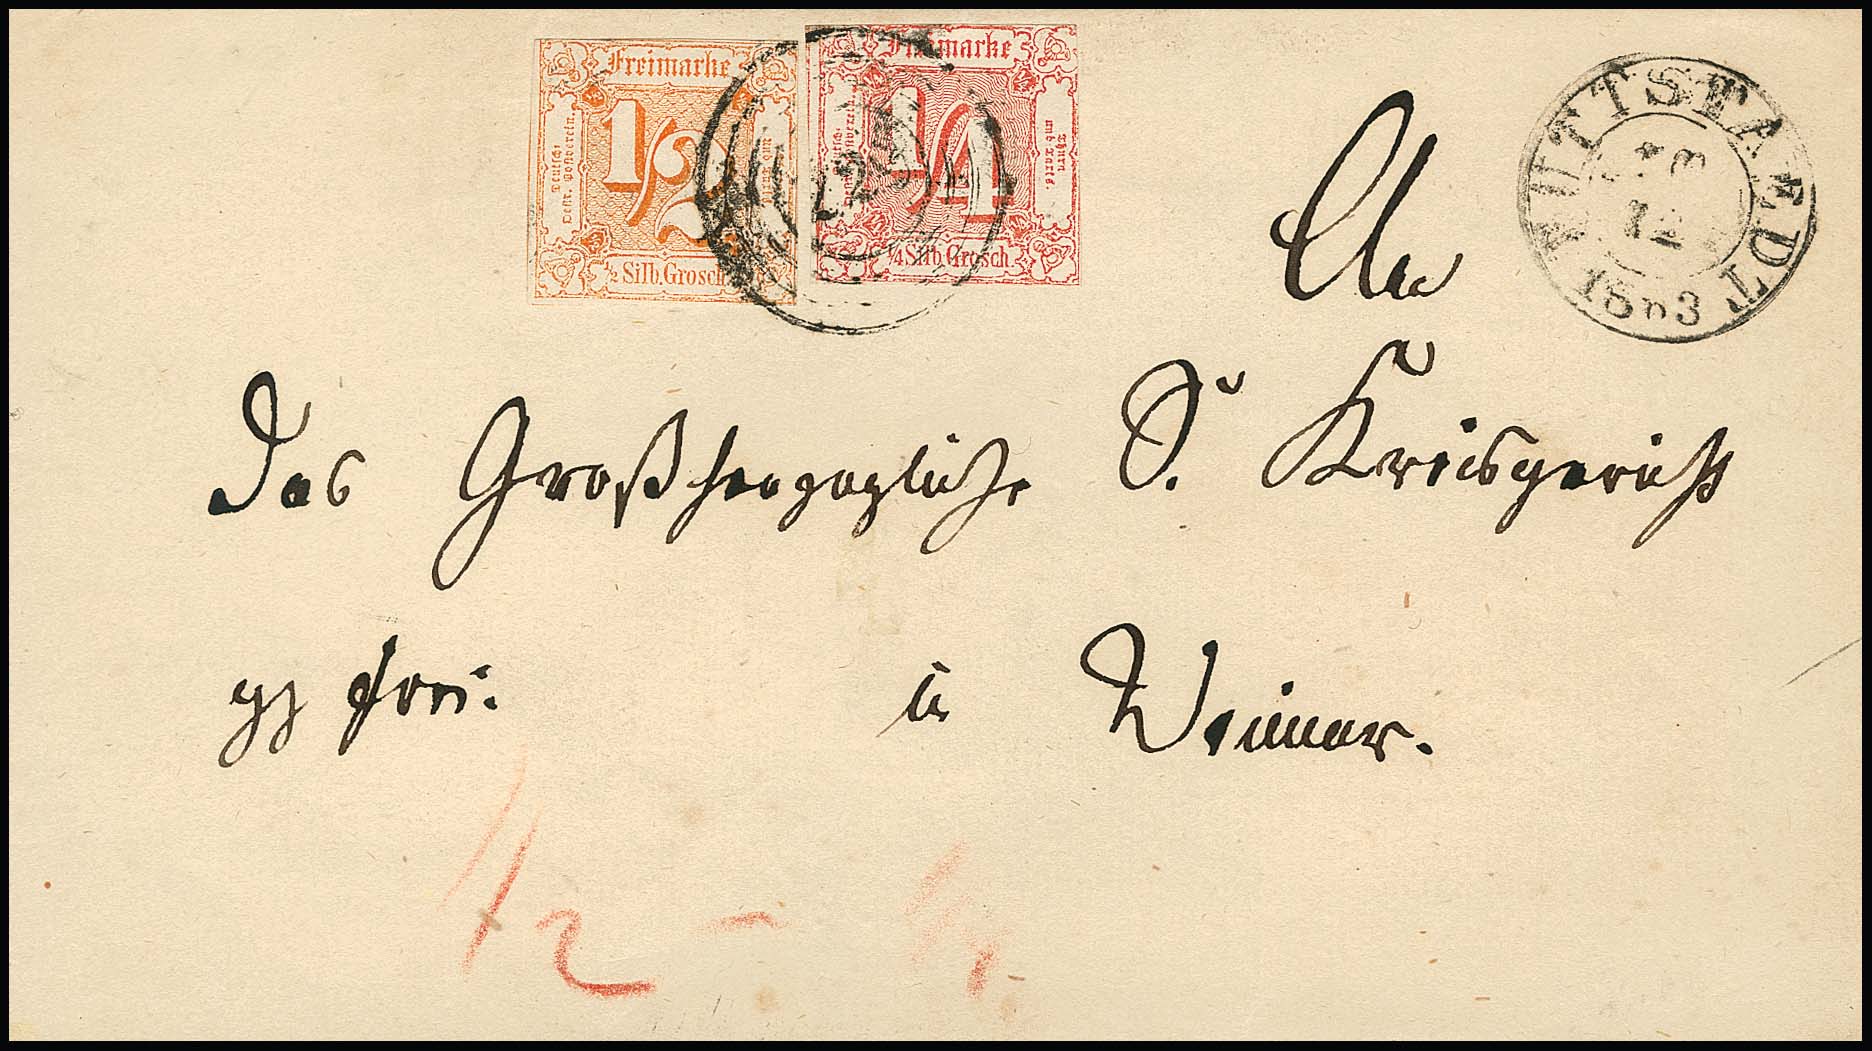 Freimarke
1/2
Deutsch-
Östr. Postverein.
½ Silb. Grosch
Freimarke
1/4
Thurn
und Taxis.
¼ Silb. Grosch.
BUTTSTAEDT
12
1863
An
Das Großherzogliche S. Kreisgericht
frei.
in Weimar.
1/2 –